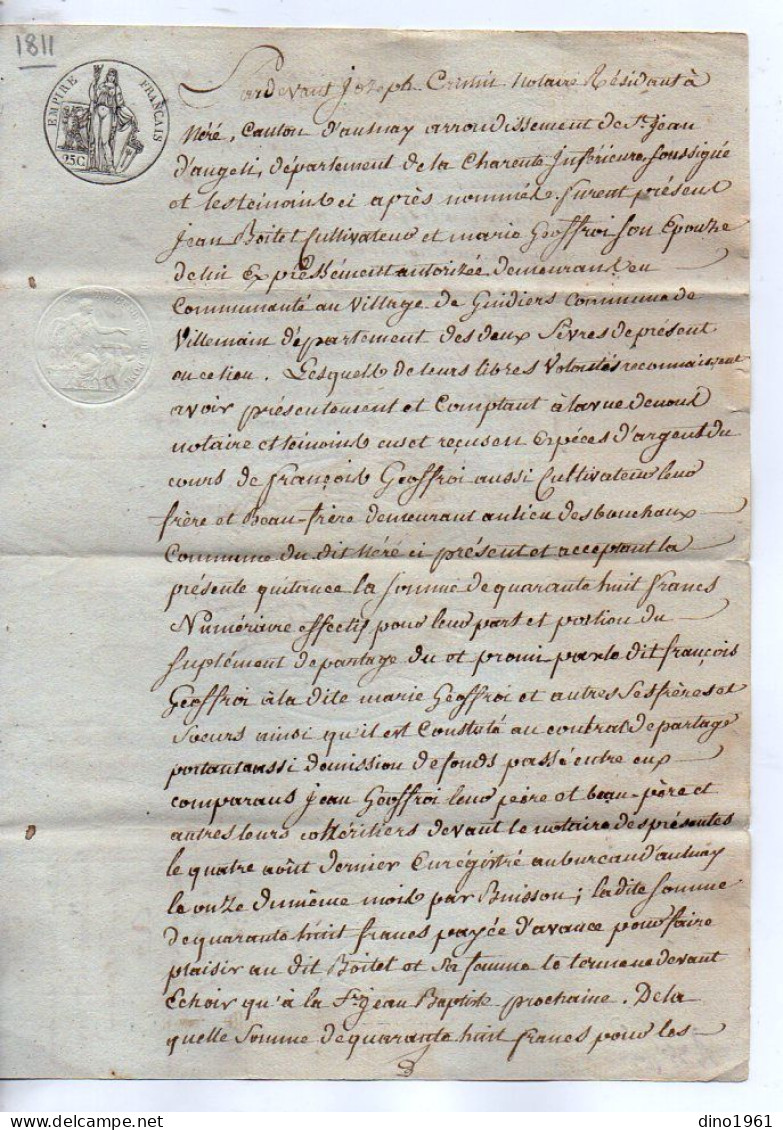 1811
EMPIRE FRANÇAIS
25C
Pardevant Jozeph Notaire Résidant à
Néré, Canton d'aulnay arrondissement de St. Jean
d'angeli, département de la Charente Inférieure soussigné
et les témoins ci après nommés. furent présent
Jean Boitet Cultivateur et marie Geoffroi son Epouze
de lui Expréssément autorizée demeurans en
Communauté au Village de Guidiers Commune de
Villemain département des deux Sevres de présent
en ce lieu. Lesquels de leurs libres Volontés reconnaissent
avoir présentement et Comptant à la vue de nous
notaire et témoins eus et reçus en Espéces d'argent du
cours de françois Geoffroi aussi Cultivateur leur
frère et Beau-frère demeurant au lieu des bouchaux
Commune du dit Néré ci présent et acceptant la
présente quitance la somme de quarante huit francs
Numéraire effectif pour leur part et portion du
suplément de partage du et promi par le dit françois
Geoffroi à la dite marie Geoffroi et autres Ses frères et
Soeurs ainsi qu'il est Constaté au contrat de partage
portant aussi demission de fonds passé entre eux
comparans Jean Geoffroi leur pére et beau-pére et
autres leurs cohéritiers devant le notaire des présentes
le quatre août dernier Enrégistré au bureau d'aulnay
le onze du même mois par Buisson; la dite somme
de quarante huit francs payée d'avance pour faire
plaisir au dit Boitet et sa famme le terme ne devant
Echoir qu'à la St. Jean Baptiste prochaine. De la
quelle Somme de quarante huit francs pour les
dino1961